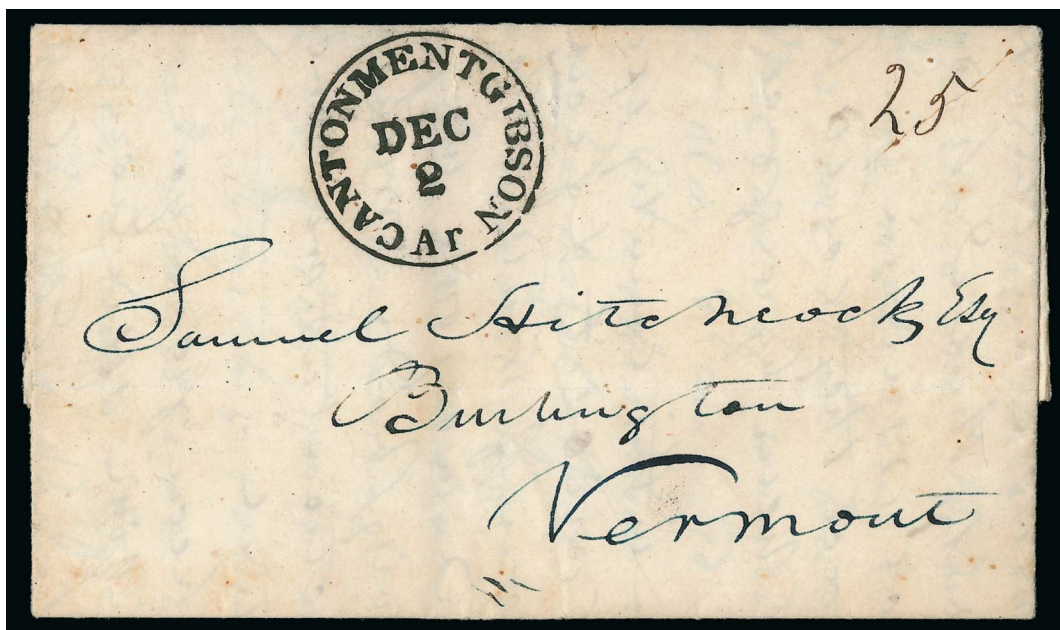 CANTONMENT GIBSON Ar
DEC
2
25
Samuel Hitchcock Esq
Burlington
Vermont